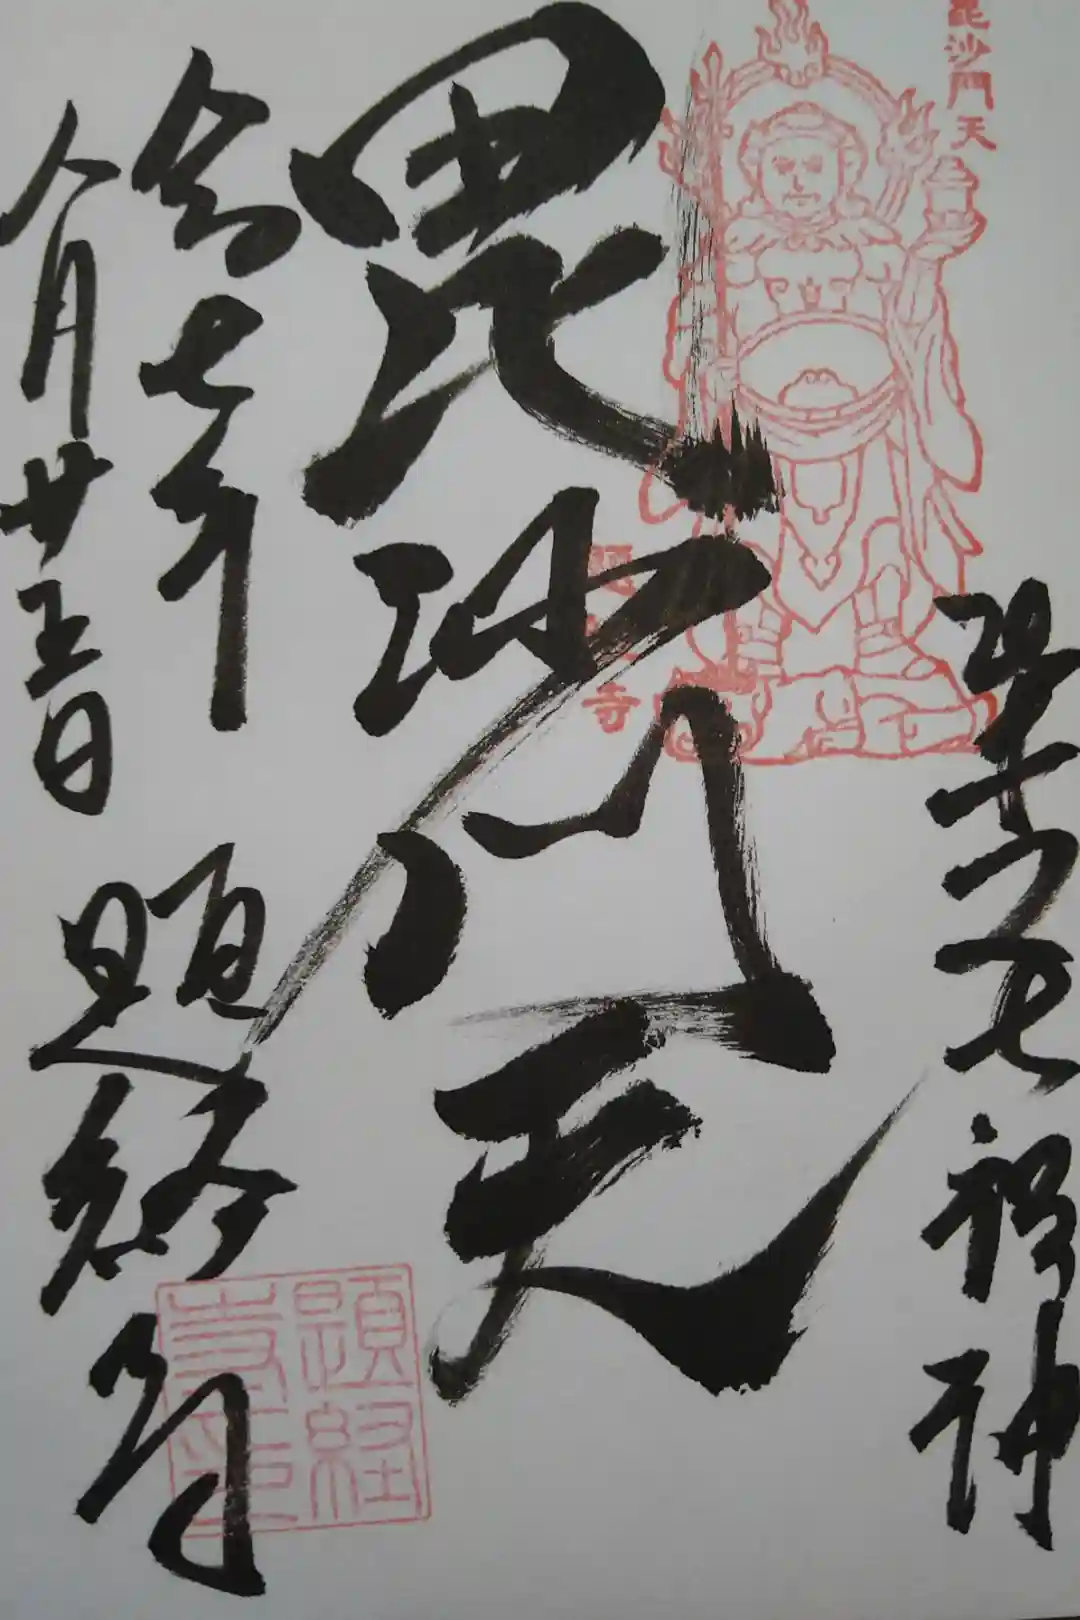 毘沙門天
柴又七福神
毘沙門天
令和七年
八月廿五日
題経寺
題経寺印